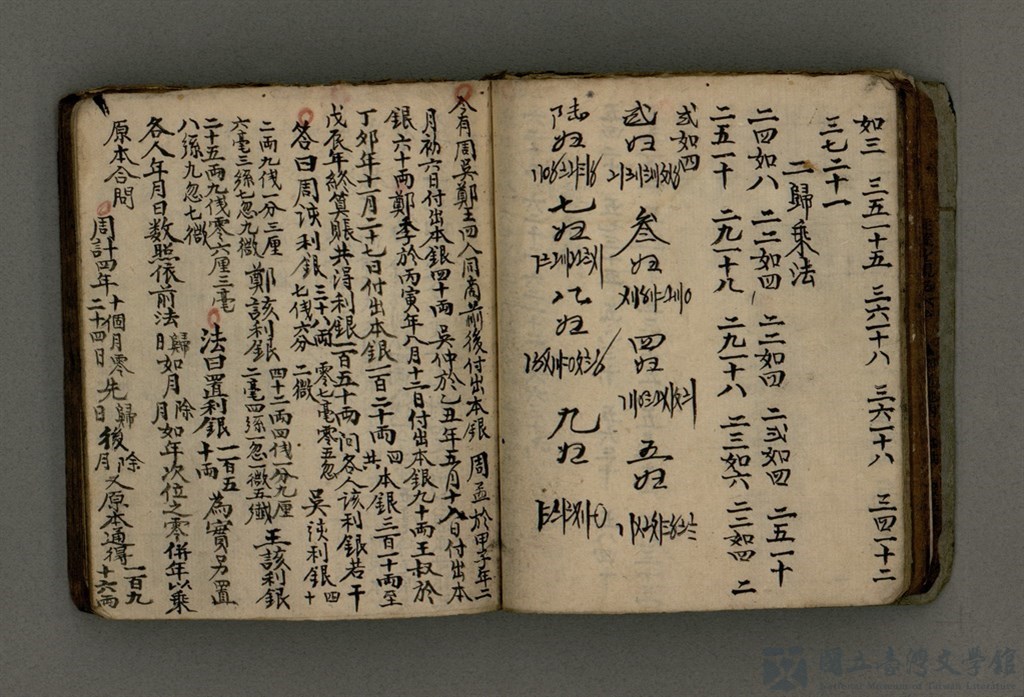 如三 三五一十五 三六一十八 三六一十八 三四一十二
三七二十一
二歸乘法
二四如八 二二如四 二二如四 二弍如四 二五一十
二五一十 二九一十八 二九一十八 二三如六 二二如四 二
弍如四
弍归 叁归 四归 五归
陆归 七归 八归 九归
今有周吳鄭王四人同商前後付出本銀 周孟於甲子年二
月初六日付出本銀四十両 吳仲於乙丑年五月十八日付出本
銀六十両鄭季於丙寅年八月十二日付出本銀九十両王叔於
丁夘年十一月二十七日付出本銀一百二十両四共本銀三百一十両至
戊辰年終算賬共淂利銀一百五十両问各人該利銀若干
答曰周該利銀三十八両七伐六分零七毫零五忽二微 吳該利銀四十
二両九伐一分三厘六毫三絲七忽九微 鄭該利銀四十二両四伐一分九厘二毫四絲一忽一微五纖 王該利銀
二十五両九伐零六厘三毫八絲九忽七微 法曰置利銀一百五十両為實另置
各人年月日数照依前法日歸如月月除如年次位之零併年以乘
原本合問
周計四年十個月零二十四日 先日歸後月除又原本通得一百九十六両